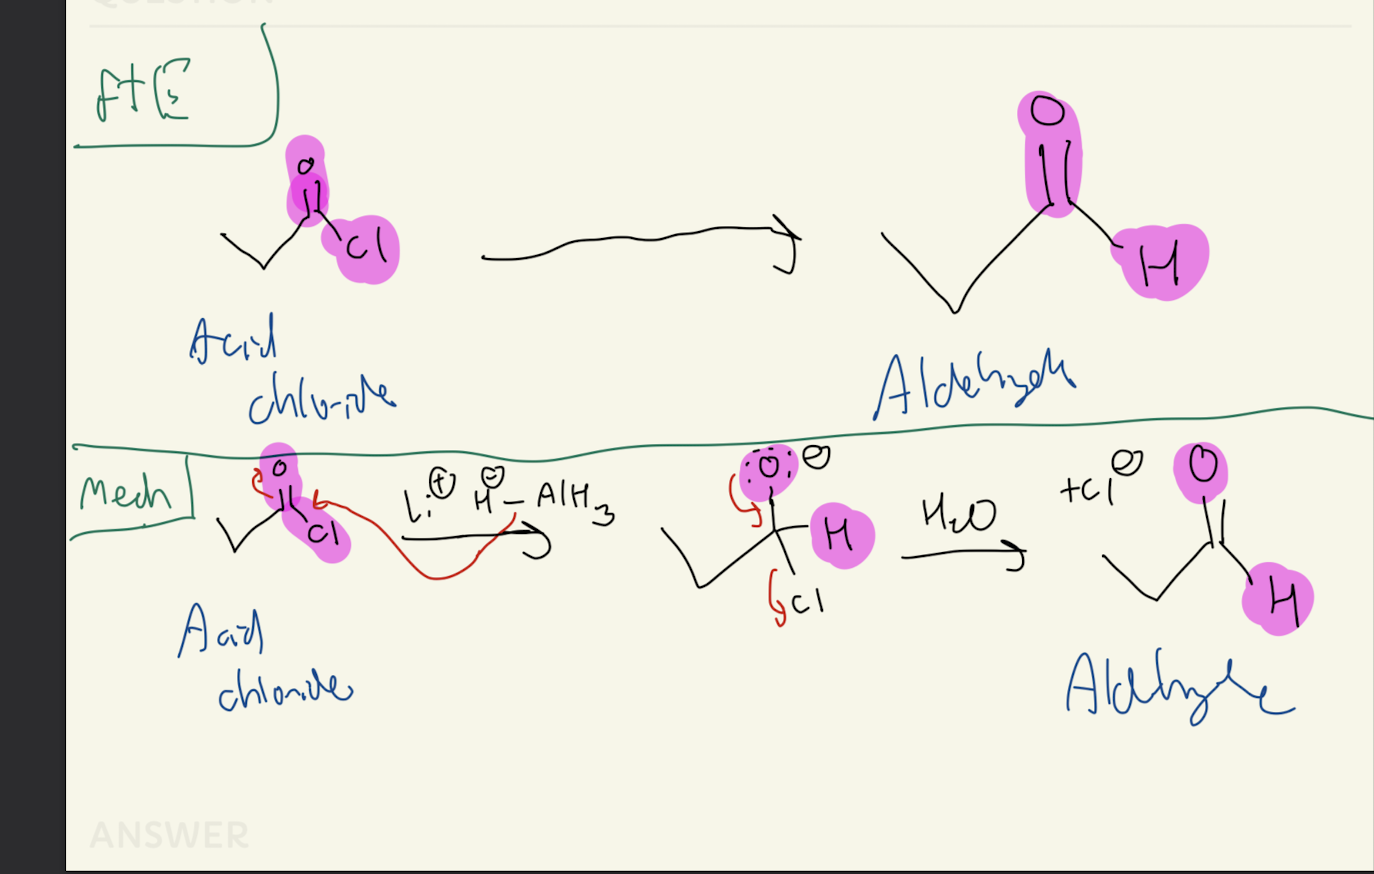 QUESTION
O
Cl
O
H
Acid
chloride
Aldehyde
Mech
O
Cl
Li⊕ H⊖ – AlH3
O ⊖
H
Cl
H2O
+Cl⊖
O
H
Acid
chloride
Aldehyde
ANSWER